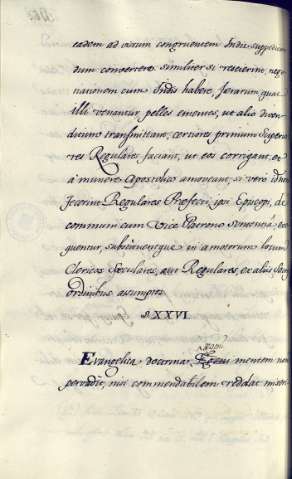 eadem ad victum congruentem Indis suppedi
dum convertere similiter si rescierint, nego
tiationem cum Indis habere, ferarum quas
illi venantur, pelles ementes, ut alio diven
transmittant, certiores primum Superio
res Regulares faciant, ut eos corrigant, et
a munere Apostolico amoveant, si vero idem
fecerint Regulares Profesi, ipsi Episcopi, de
communi cum Vice Patrono sententia, ex
quentur, subtituentque in amotorum locum
Clericos Sæculares, aut Regulares, ex aliis
Ordinibus assumptos
§ XXVI
Evangelica doctrina mentem non
pervadit, nisi commendabilem reddat